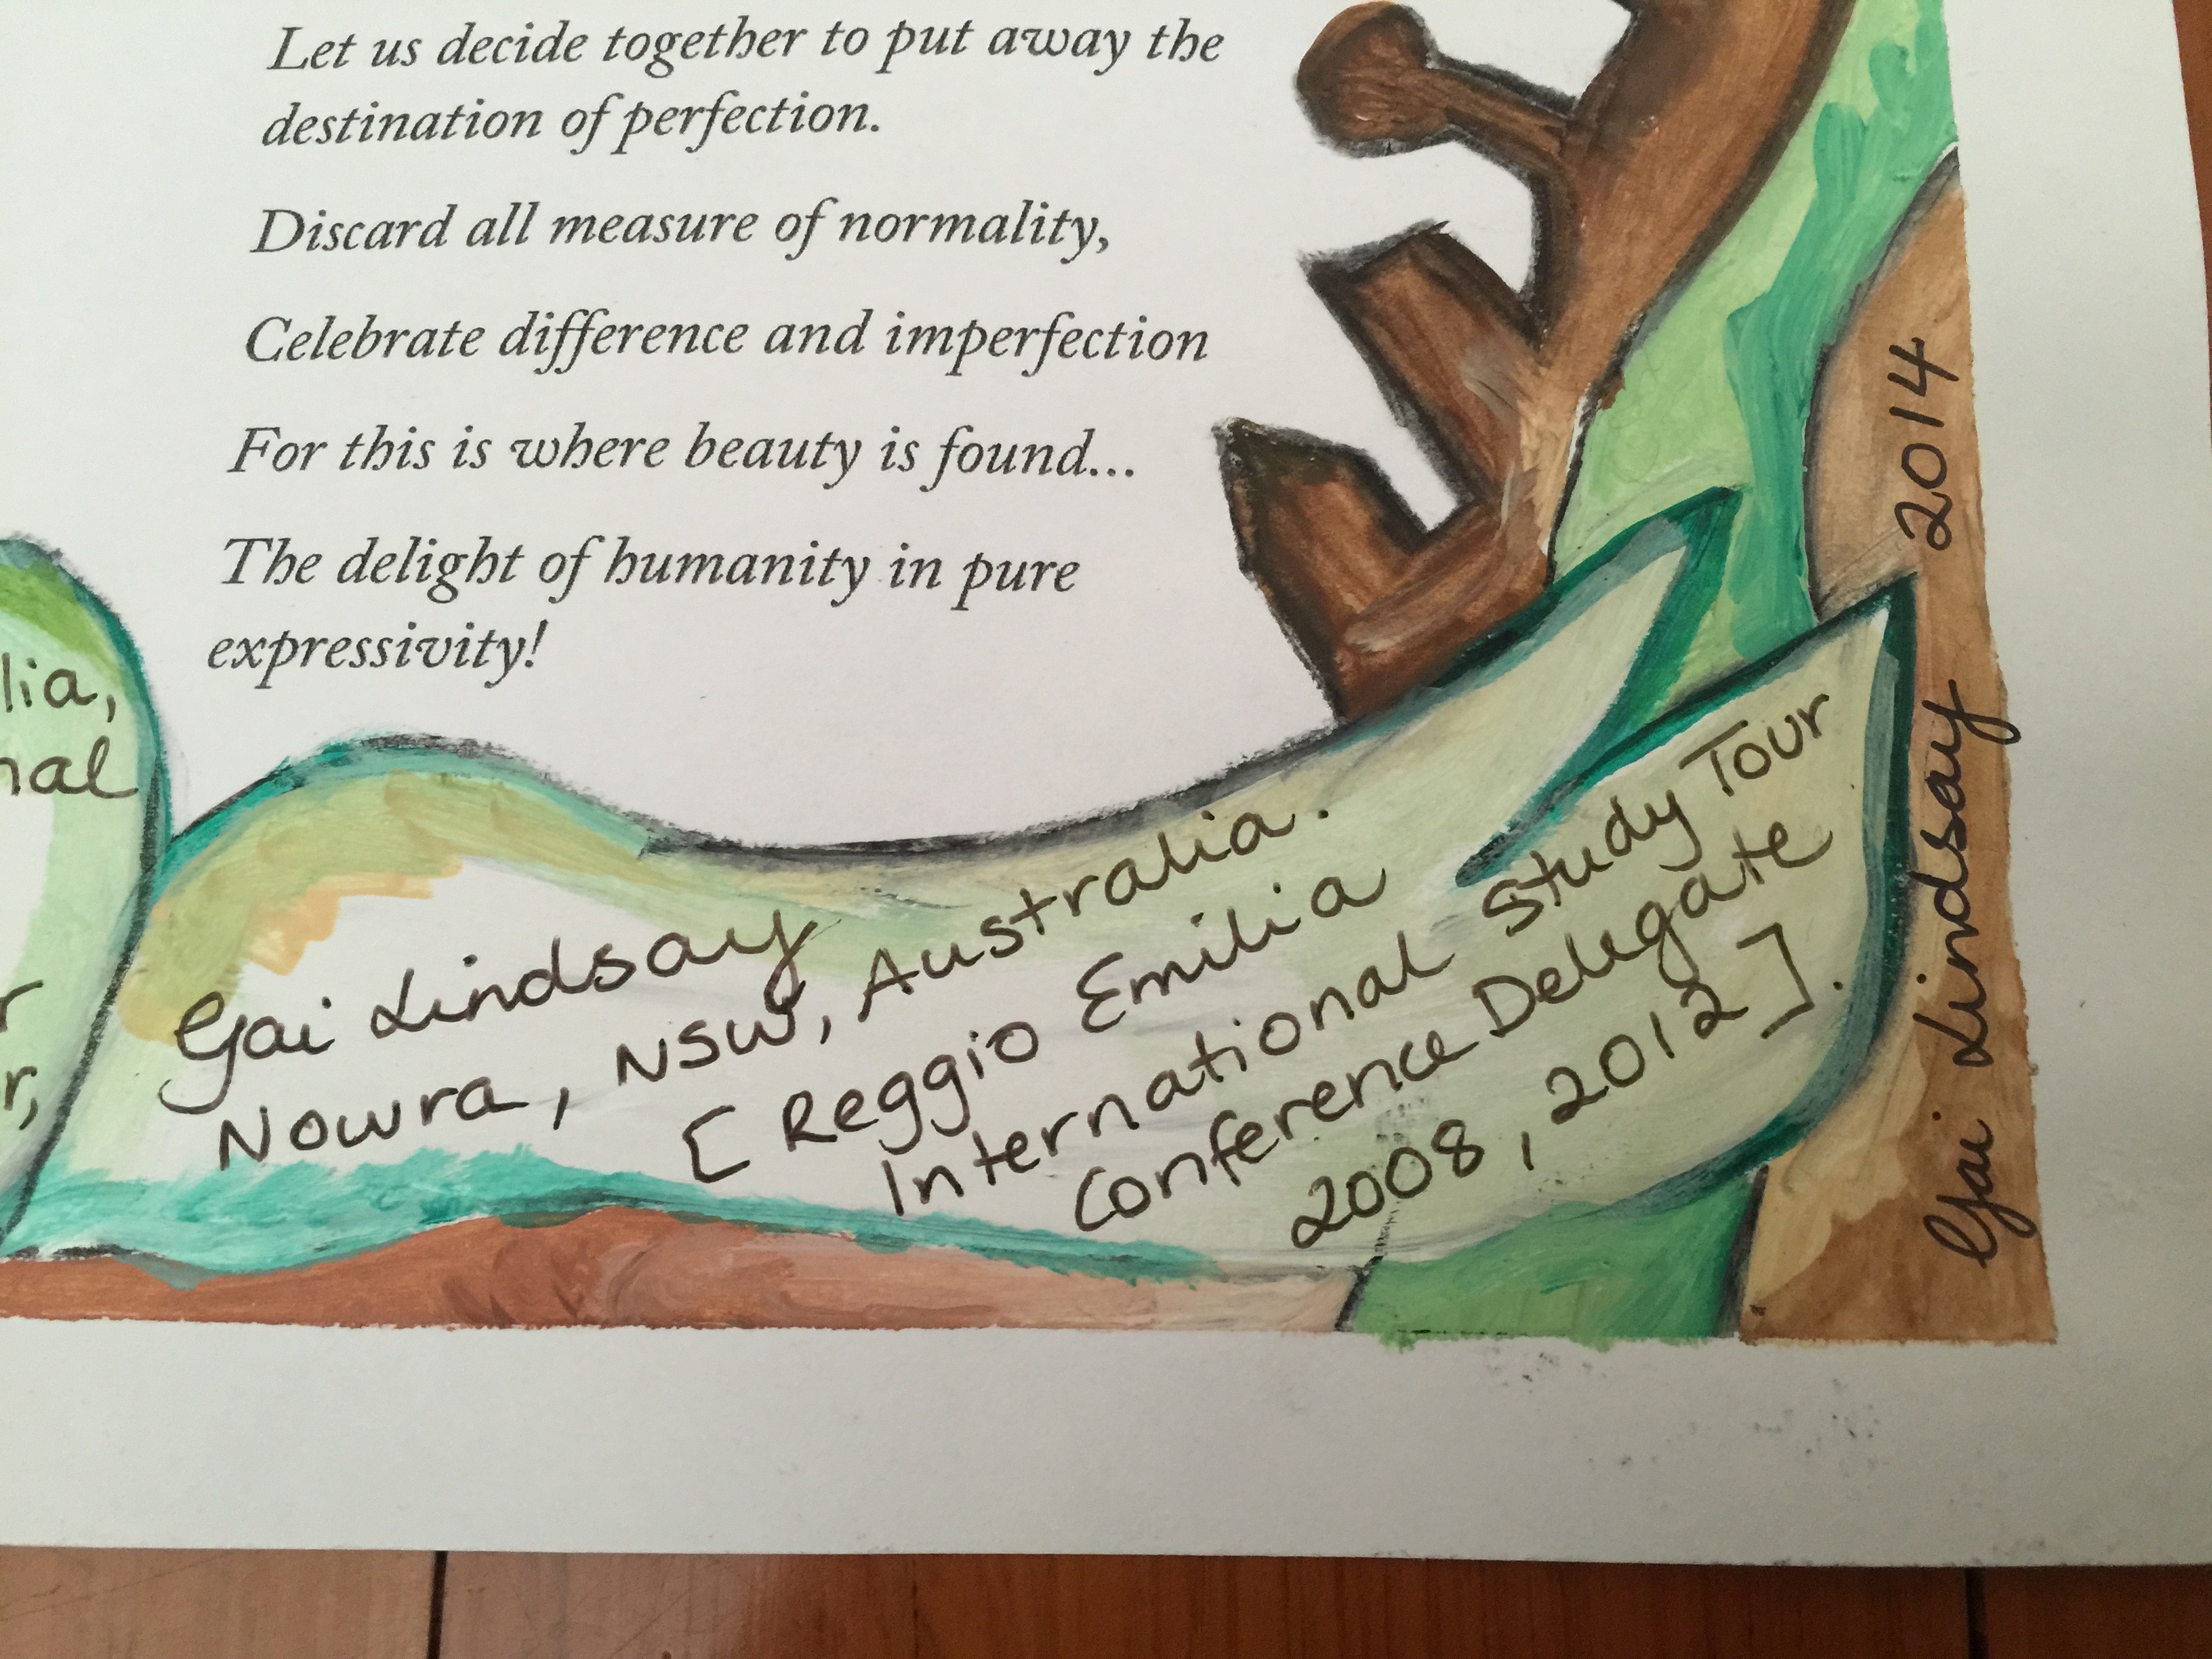 Let us decide together to put away the
destination of perfection.
Discard all measure of normality,
Celebrate difference and imperfection
For this is where beauty is found...
The delight of humanity in pure
expressivity!
lia,
nal
r
r,
Gai Lindsay
Nowra, NSW, Australia.
[Reggio Emilia
International Study Tour
Conference Delegate
2008, 2012].
Gai Lindsay 2014